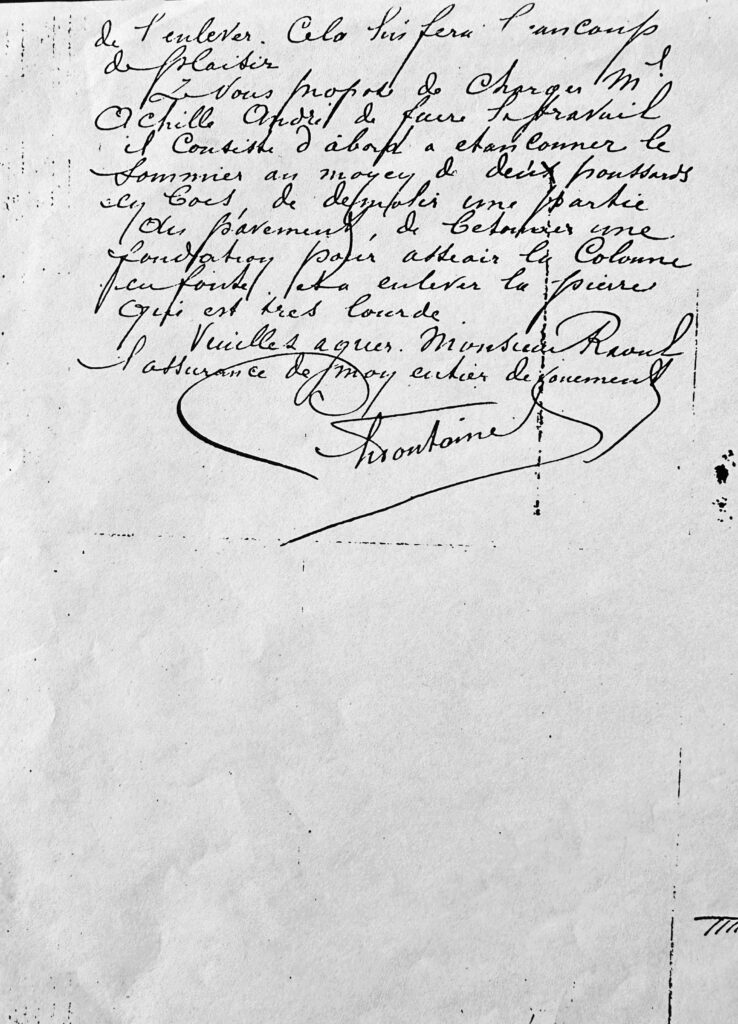 de l'enlever. Cela lui fera beaucoup
de plaisir
Je vous propose de charger Mr
Achille André de faire le travail
il consiste d'abord a etanconner le
Sommier au moyen de deux poussards
en bois, de demolir une partie
du pavement, de betonner une
fondation pour asseoir la Colonne
en fonte, et a enlever la pierre
qui est tres lourde
Veuillez agreer. Monsieur Raoul
l'assurance de mon entier devouement